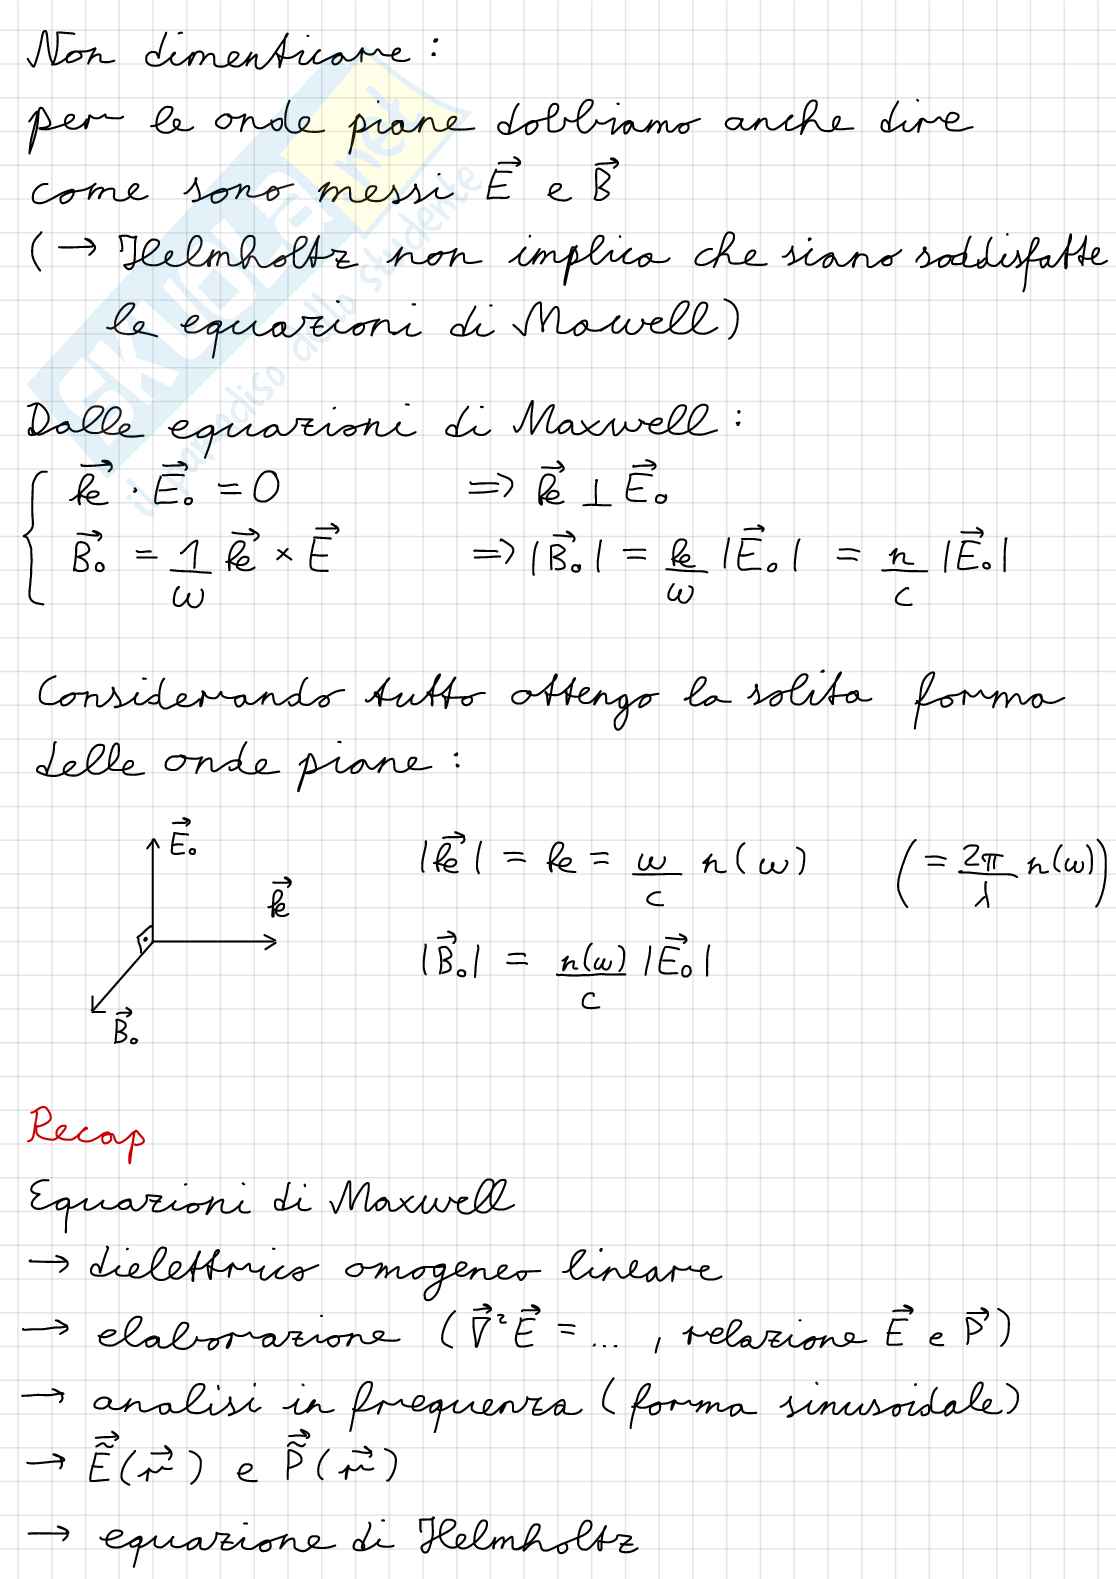 Non dimenticare:
per le onde piane dobbiamo anche dire
come sono messi E⃗ e B⃗
(→ Helmholtz non implica che siano soddisfatte
le equazioni di Mawell)
Dalle equazioni di Maxwell:
k⃗ · E⃗₀ = 0 => k⃗ ⊥ E⃗₀
B⃗₀ = 1/ω k⃗ × E⃗ => |B⃗₀| = k/ω |E⃗₀| = n/c |E⃗₀|
Considerando tutto ottengo la solita forma
delle onde piane:
E⃗₀
k⃗
B⃗₀
|k⃗| = k = ω/c n(ω) (= 2π/λ n(ω))
|B⃗₀| = n(ω)/c |E⃗₀|
Recap
Equazioni di Maxwell
→ dielettrico omogeneo lineare
→ elaborazione (∇⃗²E⃗ = ... , relazione E⃗ e P⃗)
→ analisi in frequenza (forma sinusoidale)
→ Ẽ⃗(r⃗) e P̃⃗(r⃗)
→ equazione di Helmholtz
SKUOLA.net
il paradiso dello studente